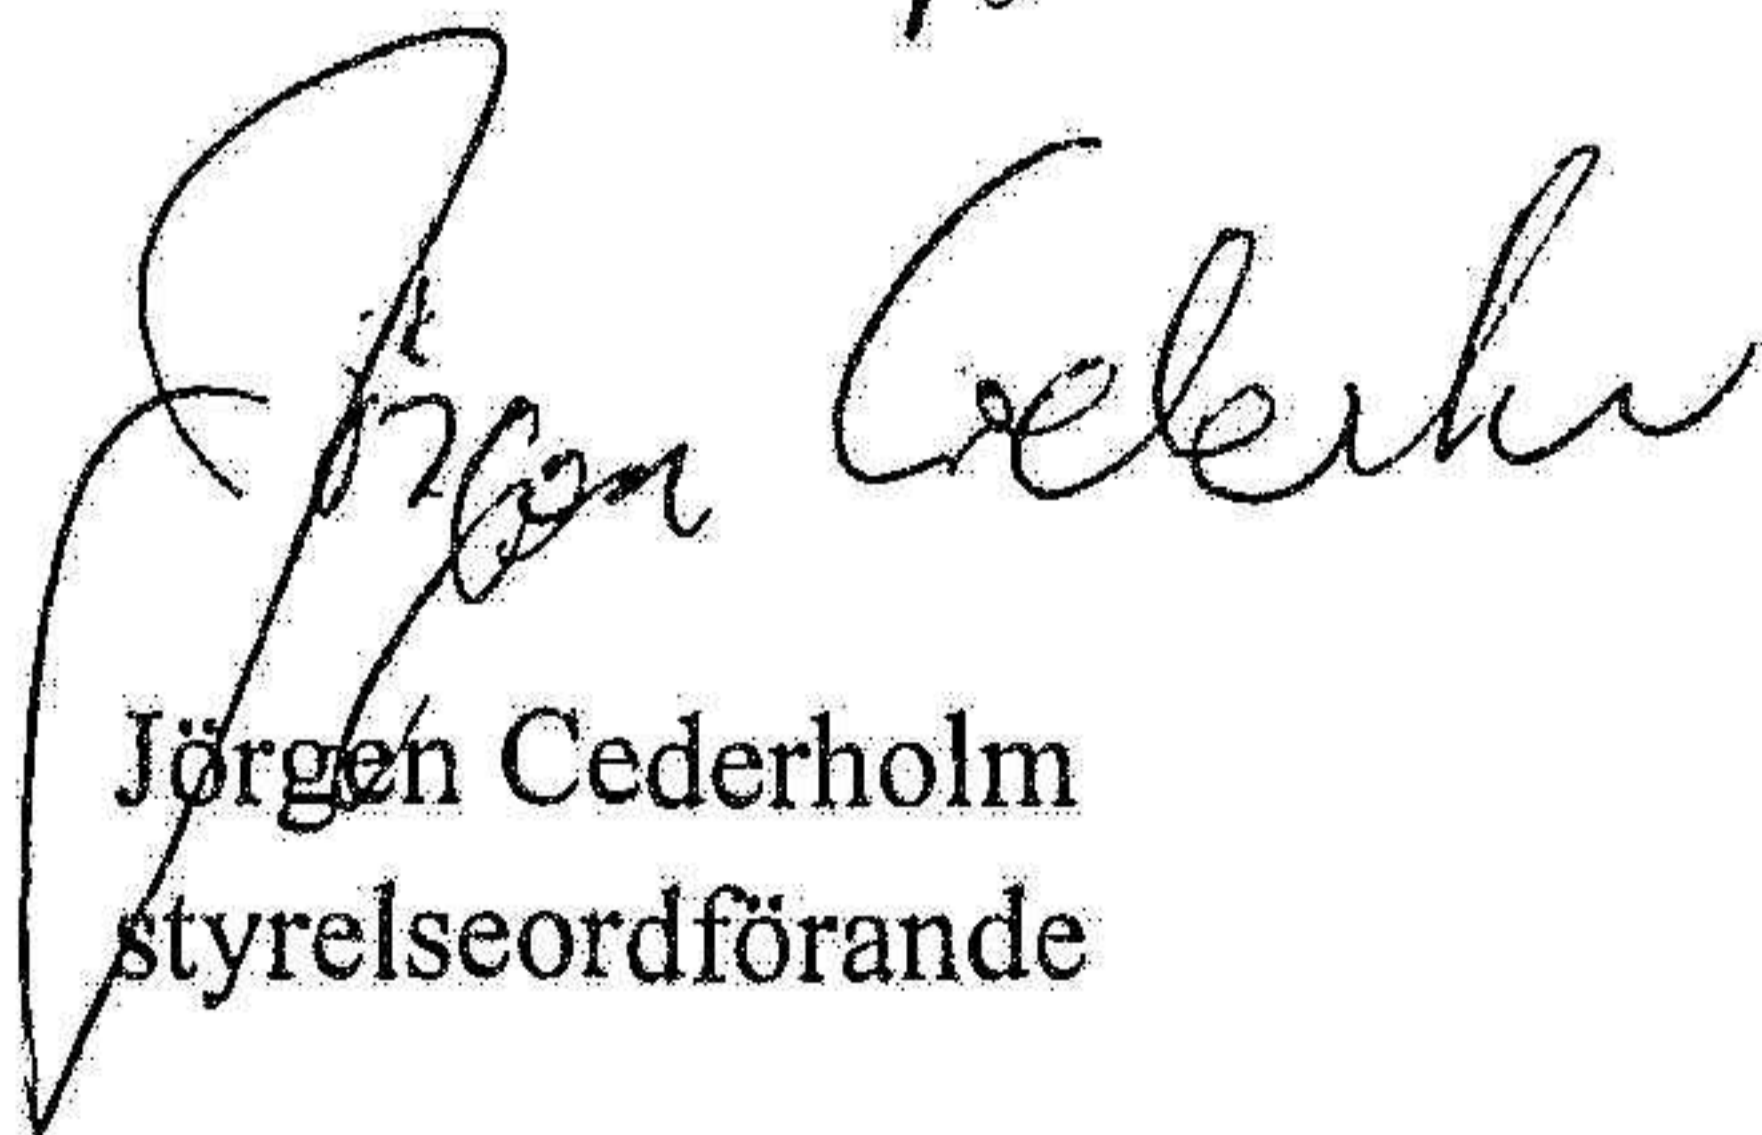 Jörgen Cederholm
Jörgen Cederholm
styrelseordförande